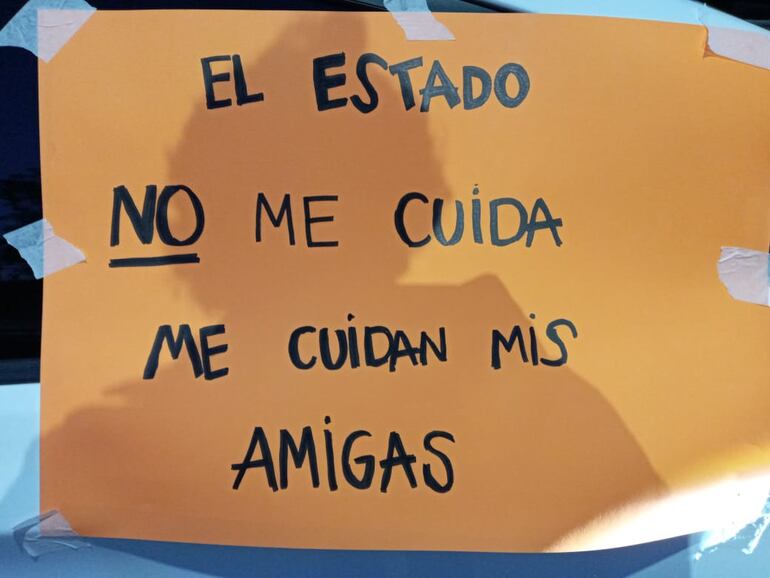 EL ESTADO
NO ME CUIDA
ME CUIDAN MIS
AMIGAS